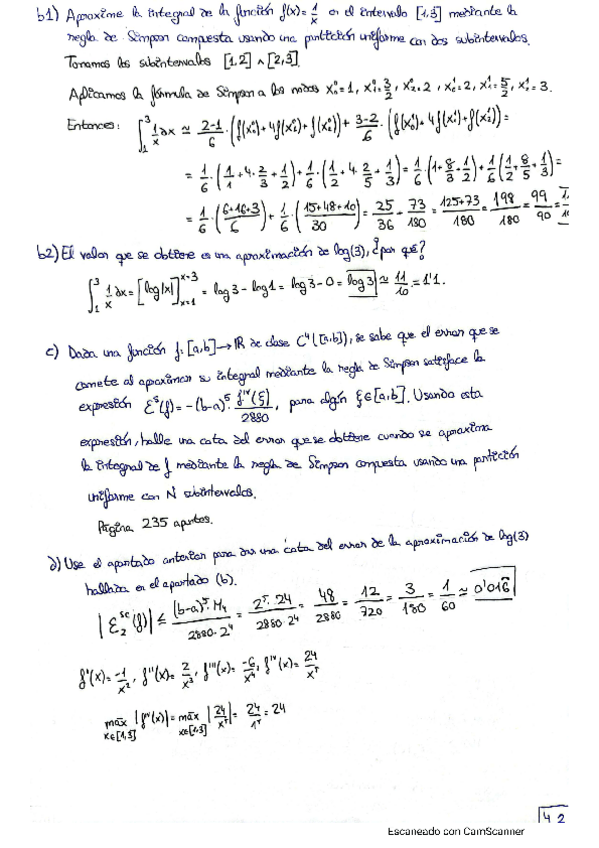 b1) Aproxime la integral de la función f(x)=1/x en el intervalo [1,3] mediante la
regla de Simpson compuesta usando una partición uniforme con dos subintervalos.
Tomamos los subintervalos [1,2] ∧ [2,3].
Aplicamos la fórmula de Simpson a los nodos x₀⁰=1, x₁⁰=3/2, x₂⁰=2, x₀¹=2, x₁¹=5/2, x₂¹=3.
Entonces: ∫₁³ 1/x dx ≃ (2-1)/6 · (f(x₀⁰)+4f(x₁⁰)+f(x₂⁰)) + (3-2)/6 · (f(x₀¹)+4f(x₁¹)+f(x₂¹)) =
= 1/6 · (1/1 + 4·2/3 + 1/2) + 1/6 · (1/2 + 4·2/5 + 1/3) = 1/6 · (1 + 8/3 + 1/2) + 1/6 (1/2 + 8/5 + 1/3) =
= 1/6 · ((6+16+3)/6) + 1/6 · ((15+48+10)/30) = 25/36 + 73/180 = (125+73)/180 = 198/180 = 99/90 =
b2) El valor que se obtiene es una aproximación de log(3), ¿por qué?
∫₁³ 1/x dx = [log|x|]ₓ₌₁ˣ⁼³ = log 3 - log 1 = log 3 - 0 = log 3 ≃ 11/10 = 1'1.
c) Dada una función f: [a,b] → ℝ de clase C⁴([a,b]), se sabe que el error que se
comete al aproximar su integral mediante la regla de Simpson satisface la
expresión ℰˢ(f) = -(b-a)⁵ · fᴵⱽ(ξ)/2880, para algún ξ∈[a,b]. Usando esta
expresión, halle una cota del error que se obtiene cuando se aproxima
la integral de f mediante la regla de Simpson compuesta usando una partición
uniforme con N subintervalos.
Página 235 apuntes.
d) Use el apartado anterior para dar una cota del error de la aproximación de log(3)
hallada en el apartado (b).
|ℰ₂ˢᶜ(f)| ≤ (b-a)⁵·M₄/(2880·2⁴) = 2⁵·24/(2880·2⁴) = 48/2880 = 12/720 = 3/180 = 1/60 ≃ 0'016̂
f'(x) = -1/x², f''(x) = 2/x³, f'''(x) = -6/x⁴, fᴵⱽ(x) = 24/x⁵
máx x∈[1,3] |fᴵⱽ(x)| = máx x∈[1,3] |24/x⁵| = 24/1⁵ = 24
42
Escaneado con CamScanner